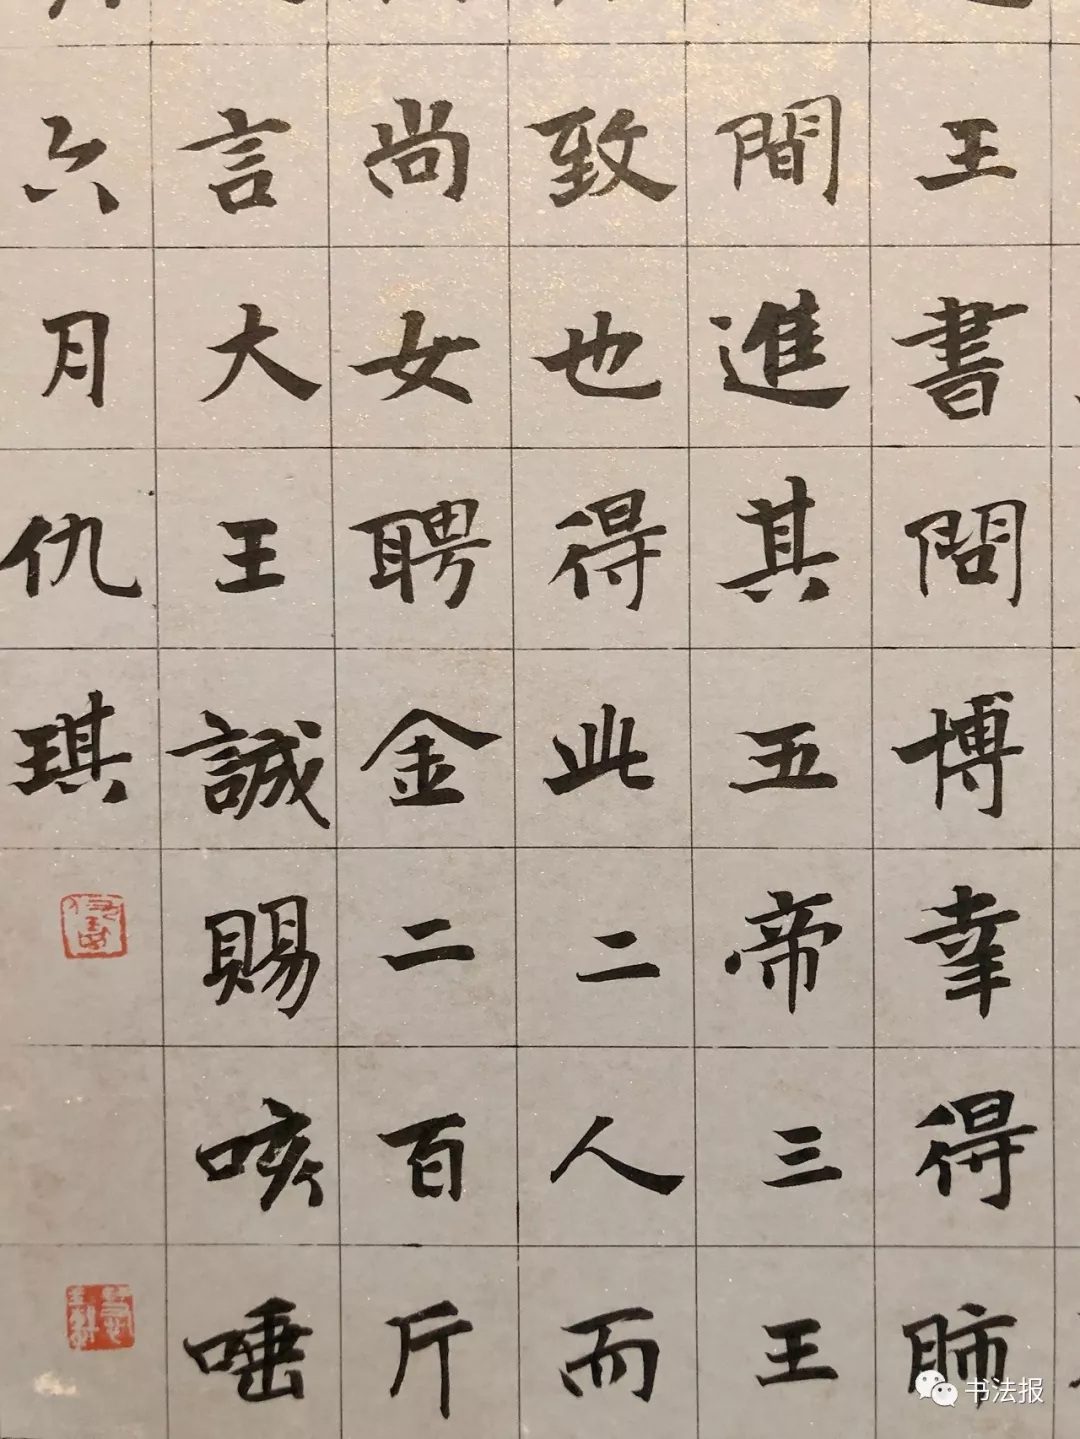 王書問博幸得肺
間進其五帝三王
致也得此二人而
尚女聘金二百斤
言大王誠賜咳唾
六月仇琪
书法报